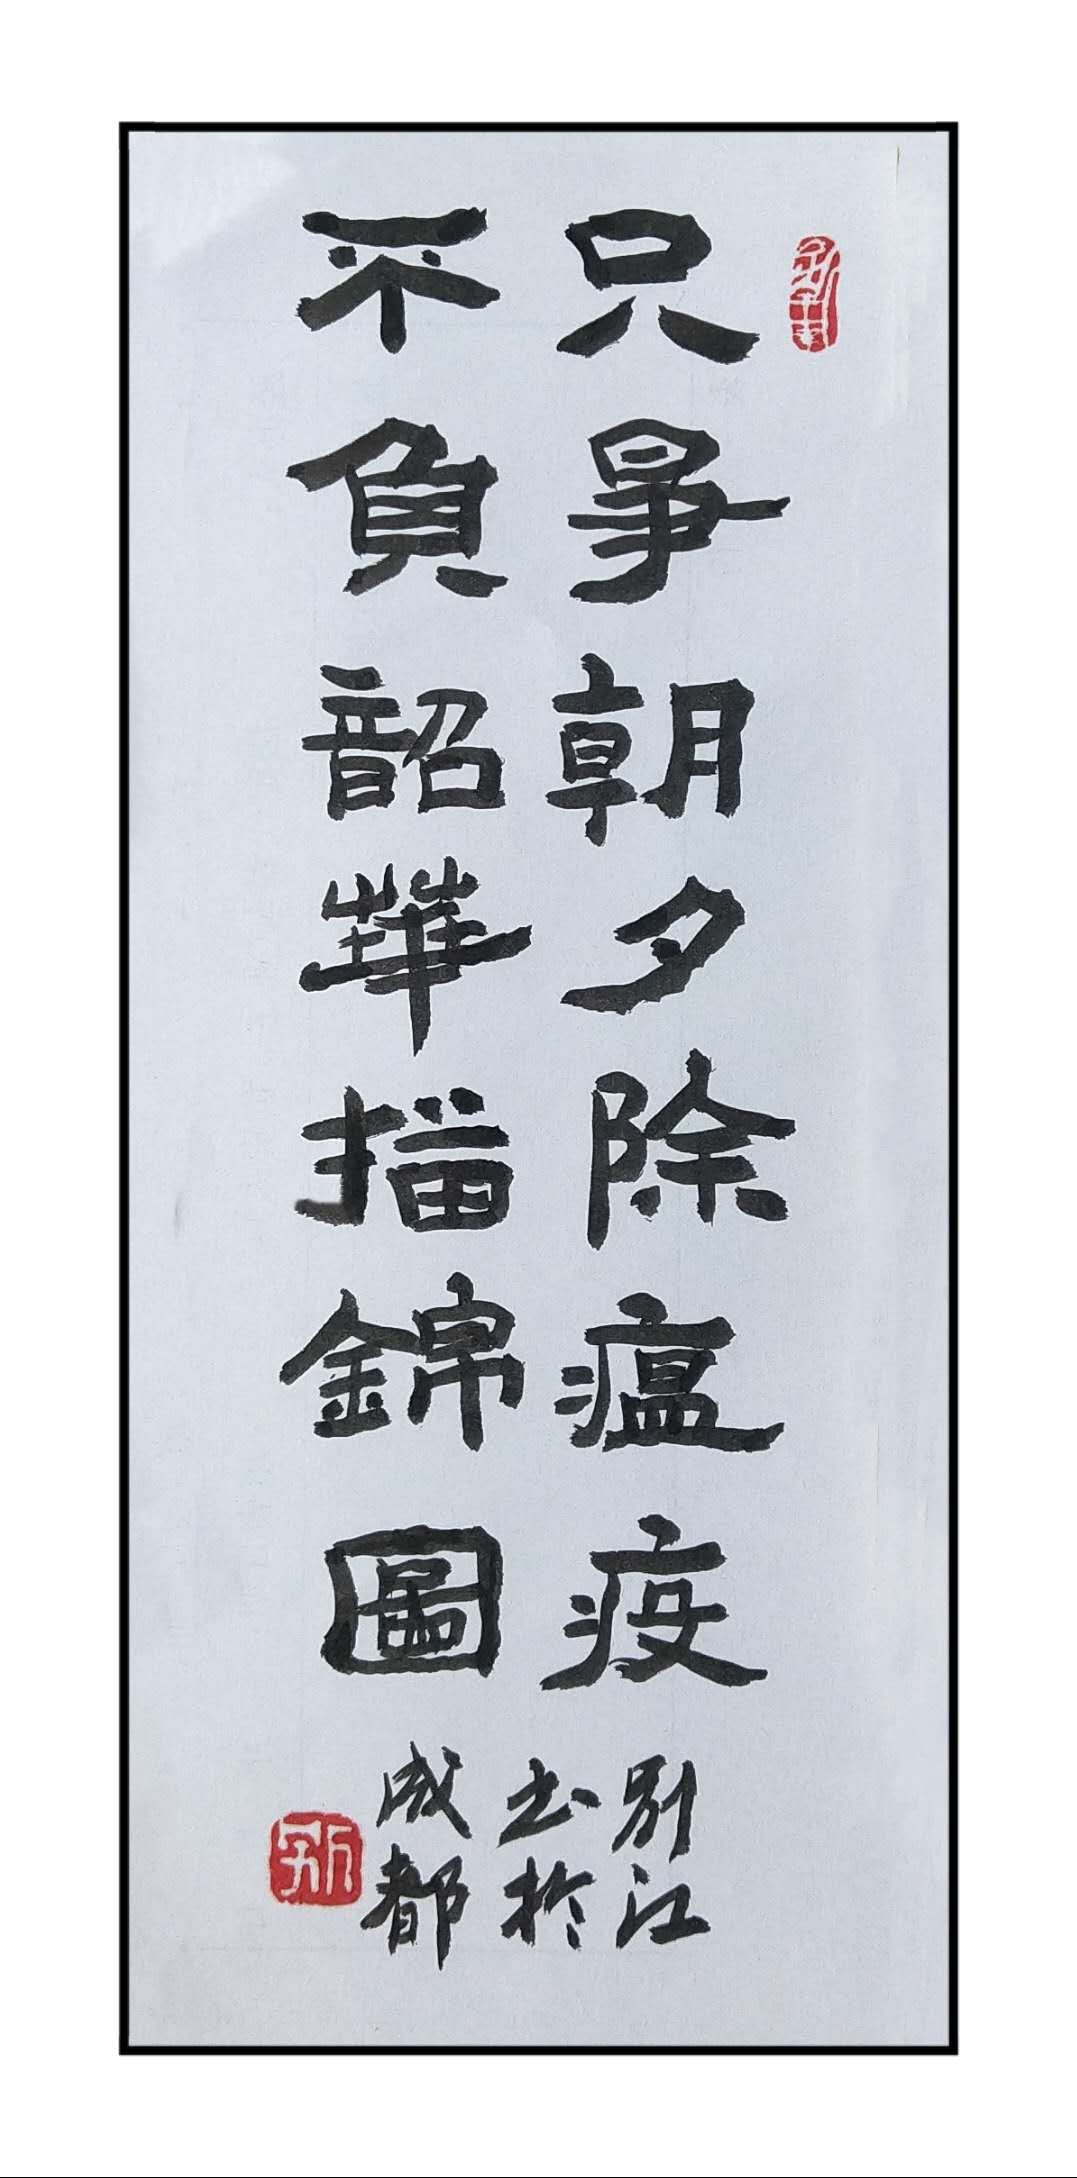 只爭朝夕除瘟疫
不負韶華描錦圖
別江
书於
成都